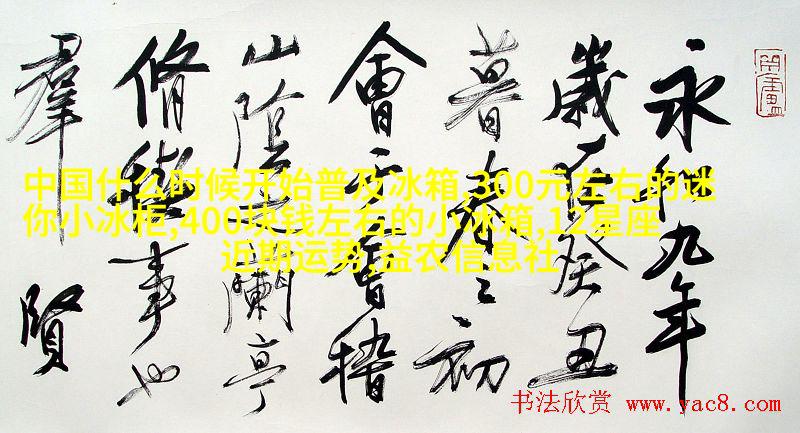 永和九年
歲在癸丑
暮春之初
會于會稽
山陰之蘭亭
脩禊事也
羣賢
中国什么时候开始普及冰箱,300元左右的迷
你小冰柜,400块钱左右的小冰箱,12星座
近期运势,益农信息社
书法欣赏 www.yac8.com